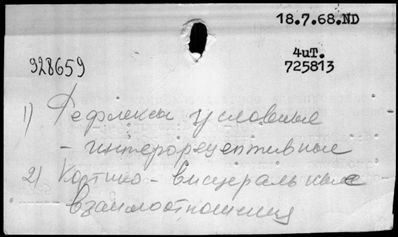 18.7.68.ND
4иТ.
725813
928659
1) Рефлексы условные
- интерорецептивные
2) Кортико-висцеральные
взаимоотношения